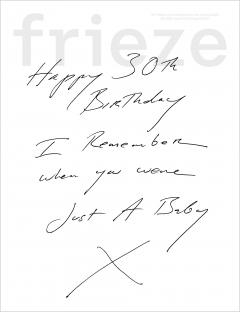 frieze
Happy 30th
Birthday
I Remember
when you were
Just A Baby
X